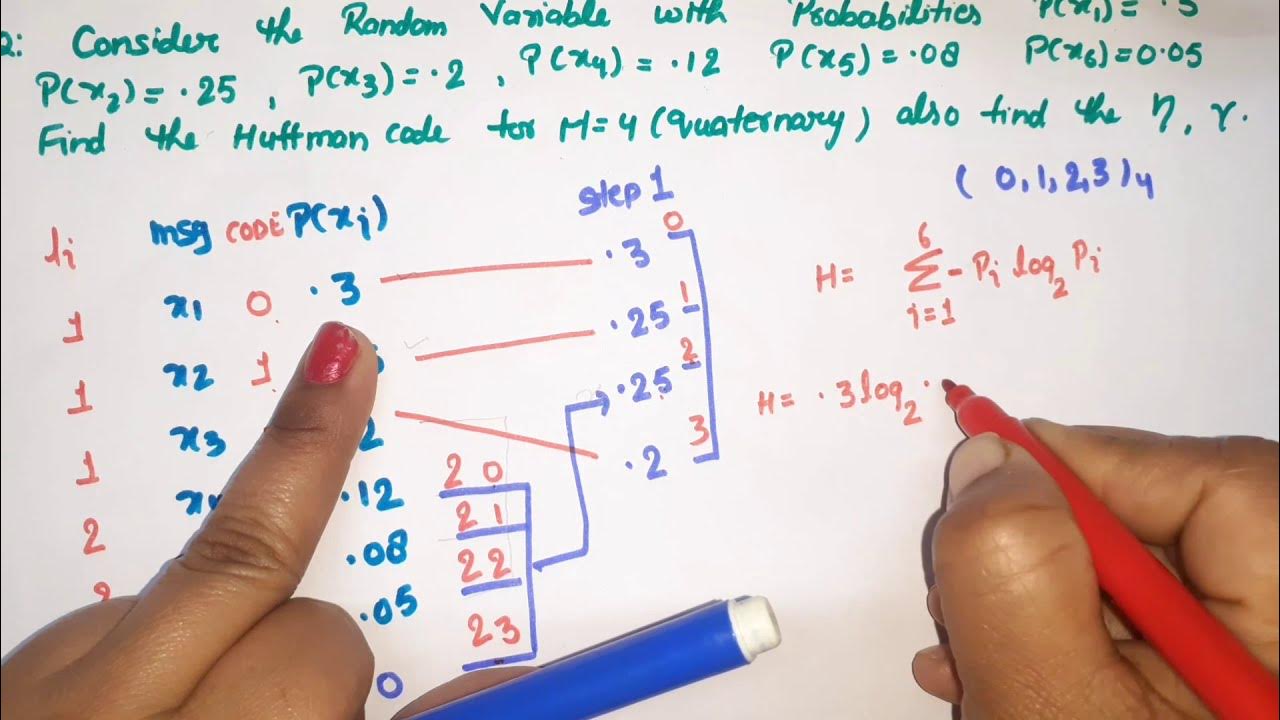 2: Consider the Random Variable with Probabilities P(x1)= .3
P(x2)= .25 , P(x3)= .2 , P(x4)= .12 P(x5)= .08 P(x6)=0.05
Find the Huffman code for M=4 (quaternary) also find the η, γ.
(0,1,2,3)4
step 1
li msg CODE P(xi)
1 x1 0 .3
1 x2 1
1 x3 2
2 .12
.08
.05
0
2 0
2 1
2 2
2 3
0
.3
1
.25
2
.25
3
.2
H= 6Σi=1 -Pi log2 Pi
H= .3log2 .